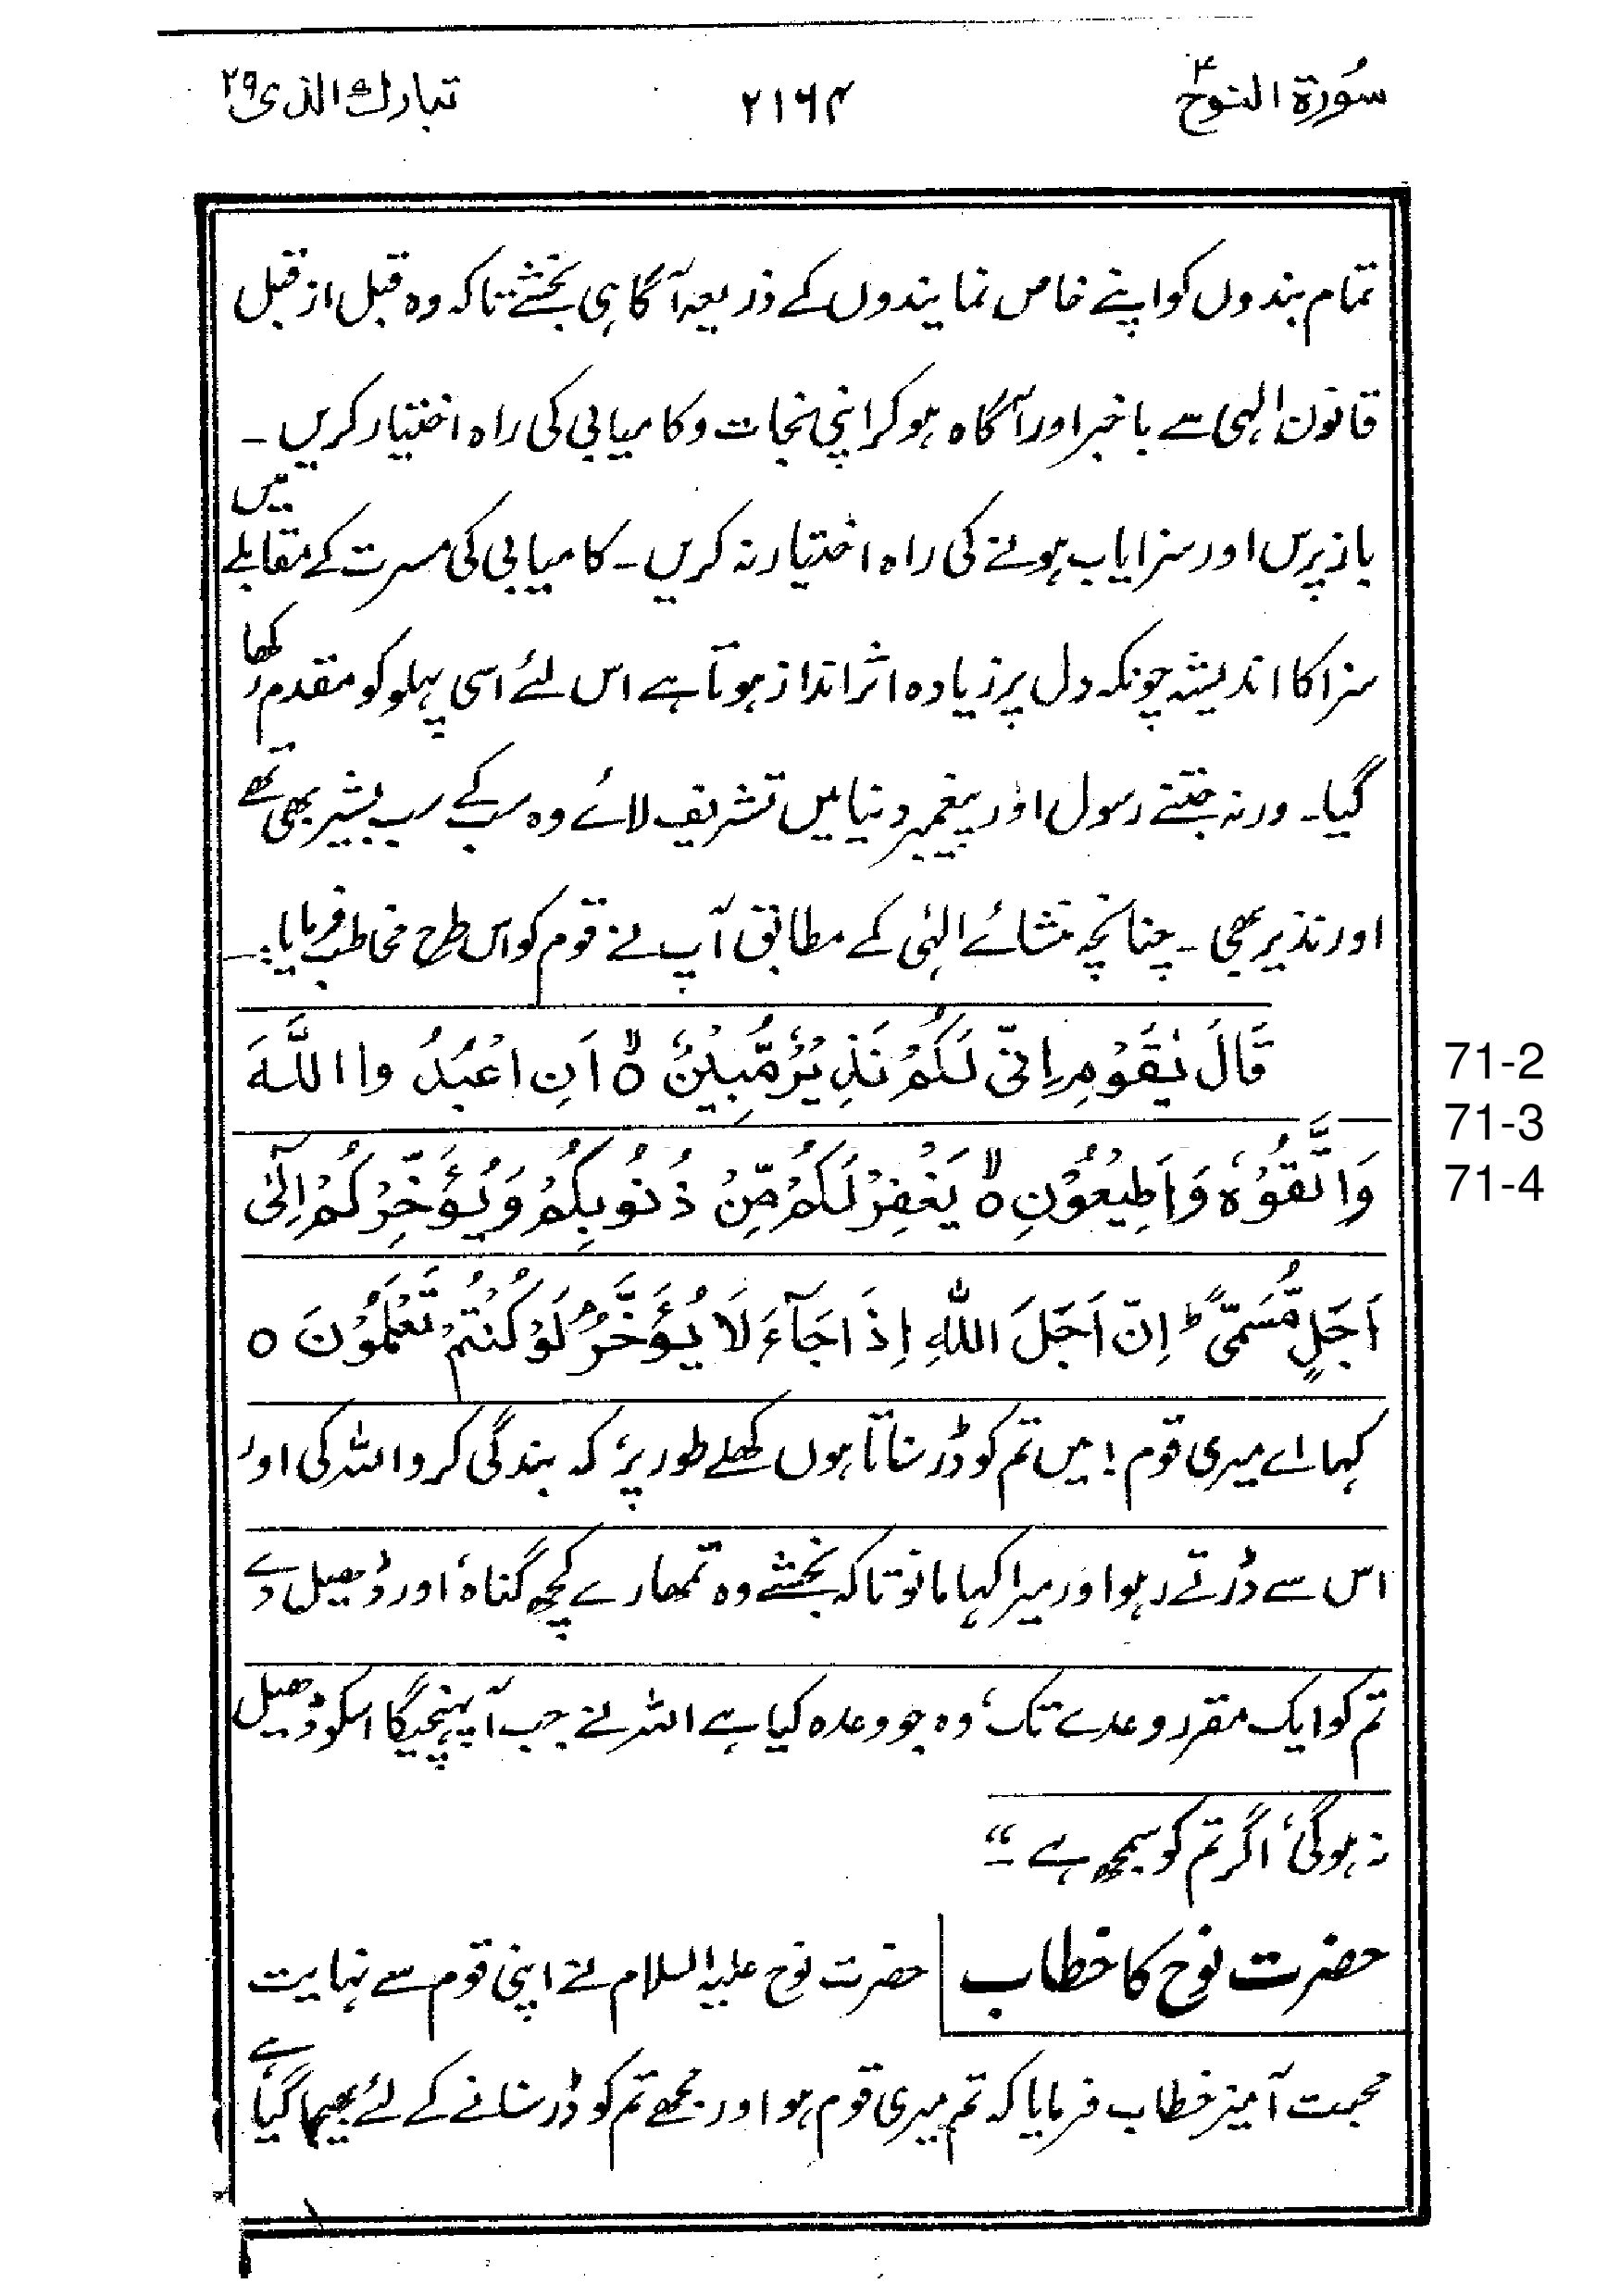 سُورۃ النوح ۴ ۲۱۶۴ تبارك الذی ۲۹
تمام بندوں کو اپنے خاص نمایندوں کے ذریعہ آگاہی بخشے تاکہ وہ قبل از قبل
قانون الٰہی سے باخبر اور آگاہ ہو کر اپنی نجات و کامیابی کی راہ اختیار کریں ۔
باز پرس اور سزا یاب ہونے کی راہ اختیار نہ کریں ۔ کامیابی کی مسرت کے مقابلے میں
سزا کا اندیشہ چونکہ دل پر زیادہ اثر انداز ہوتا ہے اس لئے اسی پہلو کو مقدم رکھا
گیا۔ ورنہ جتنے رسول اور پیغمبر دنیا میں تشریف لائے وہ سب کے سب بشیر بھی تھے
اور نذیر بھی ۔ چنانچہ منشائے الٰہی کے مطابق آپ نے قوم کو اس طرح مخاطب فرمایا :۔
قَالَ یٰقَوْمِ اِنِّیْ لَکُمْ نَذِیْرٌ مُّبِیْنٌ ۙ اَنِ اعْبُدُوا اللّٰہَ
71-2
وَاتَّقُوْہُ وَاَطِیْعُوْنِ ۙ یَغْفِرْ لَکُمْ مِّنْ ذُنُوْبِکُمْ وَیُؤَخِّرْکُمْ اِلٰٓی
71-3
71-4
اَجَلٍ مُّسَمًّی ؕ اِنَّ اَجَلَ اللّٰہِ اِذَا جَآءَ لَا یُؤَخَّرُ ۘ لَوْ کُنْتُمْ تَعْلَمُوْنَ ہ
کہا اے میری قوم ! میں تم کو ڈر سناتا ہوں کھلے طور پر، کہ بندگی کرو اللہ کی اور
اس سے ڈرتے رہو اور میرا کہا مانو تاکہ بخشے وہ تمھارے کچھ گناہ، اور ڈھیل دے
تم کو ایک مقرر وعدے تک، وہ جو وعدہ کیا ہے اللہ نے جب آپہنچیگا اسکو ڈھیل
نہ ہوگی، اگر تم کو سمجھ ہے ۔“
حضرت نوح کا خطاب حضرت نوح علیہ السلام نے اپنی قوم سے نہایت
محبت آمیز خطاب فرمایا کہ تم میری قوم ہو اور مجھے تم کو ڈر سنانے کے لئے بھیجا گیا ہے